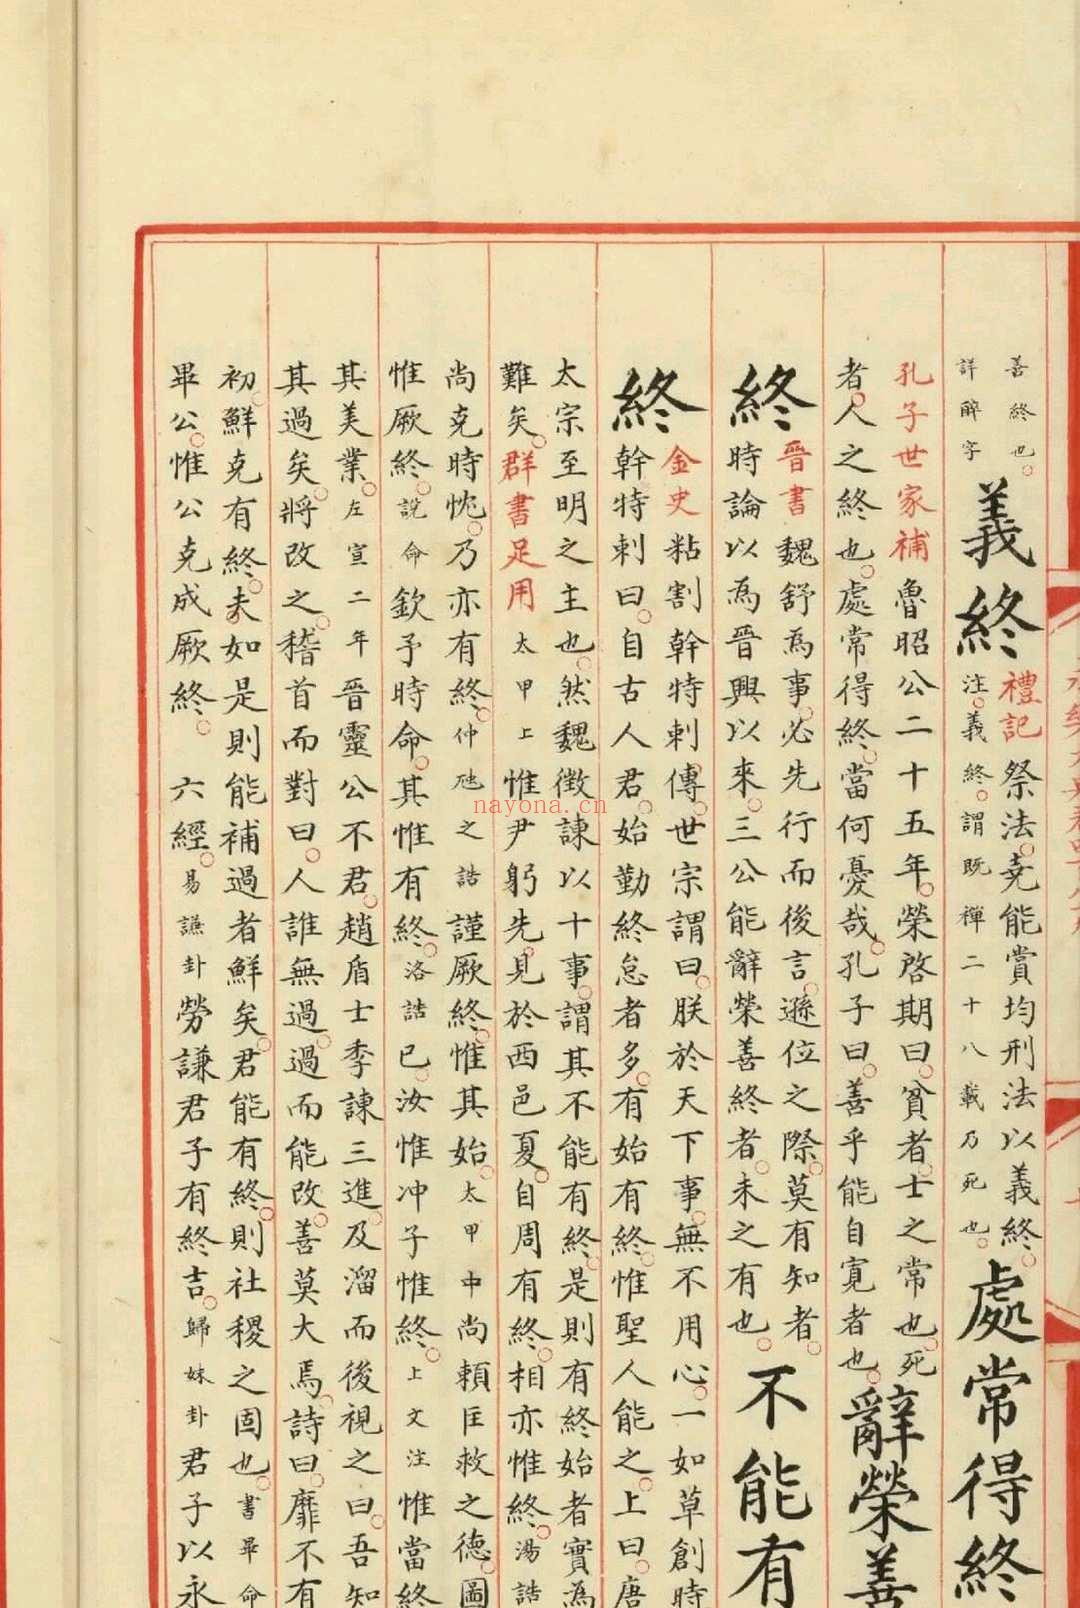 善終也
詳辭字
義終
禮記祭法堯能賞均刑法以義終
注義終謂既禪二十八載乃死也
處常得終
孔子世家補魯昭公二十五年榮啓期曰貧者士之常也死
者人之終也處常得終當何憂哉孔子曰善乎能自寬者也
辭榮善
終
晉書魏舒為事必先行而後言遜位之際莫有知者
時論以為晉興以來三公能辭榮善終者未之有也
不能有
終
金史粘割斡特剌傳世宗謂曰朕於天下事無不用心一如草創時
斡特剌曰自古人君始勤終怠者多有始有終惟聖人能之上曰唐
太宗至明之主也然魏徵諫以十事謂其不能有終是則有終始者實為
難矣群書足用太甲上惟尹躬先見於西邑夏自周有終相亦惟終湯誥
尚克時忱乃亦有終仲虺之誥謹厥終惟其始太甲中尚賴匡救之德圖
惟厥終說命欽予時命其惟有終洛誥已汝惟沖子惟終上文注惟當終
其美業左宣二年晉靈公不君趙盾士季諫三進及溜而後視之曰吾知
其過矣將改之稽首而對曰人誰無過過而能改善莫大焉詩曰靡不有
初鮮克有終夫如是則能補過者鮮矣君能有終則社稷之固也書畢命
畢公惟公克成厥終 六經易謙卦勞謙君子有終吉歸妹卦君子以永
nayona.cn